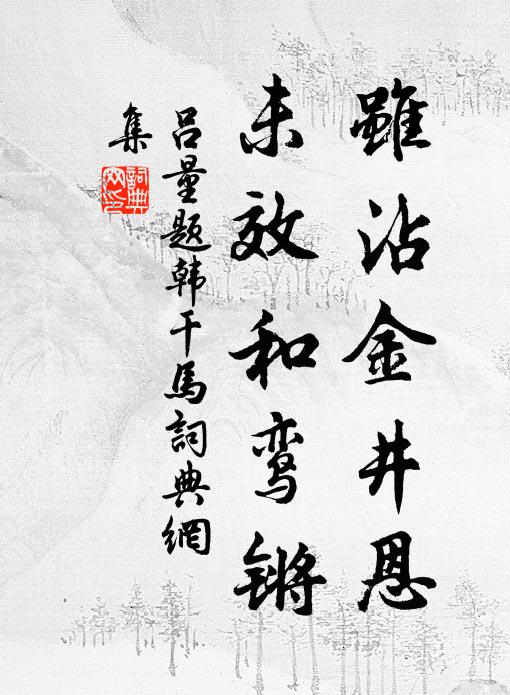 雖沾金井恩
未效和鸾锵
吕量题韩干馬詞典網
集
詞典網印